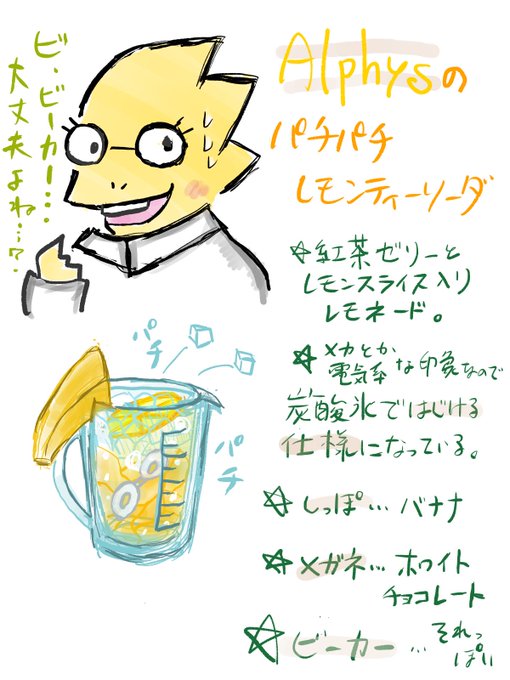 ビ、ビーカー…
大丈夫よね…?
Alphysの
パチパチ
レモンティーソーダ
☆紅茶ゼリーと
レモンスライス入り
レモネード。
☆メカとか
電気系な印象なので
炭酸氷ではじける
仕様になっている。
☆しっぽ…バナナ
☆メガネ…ホワイト
チョコレート
☆ビーカー…それっ
ぽい
パチ
パチ